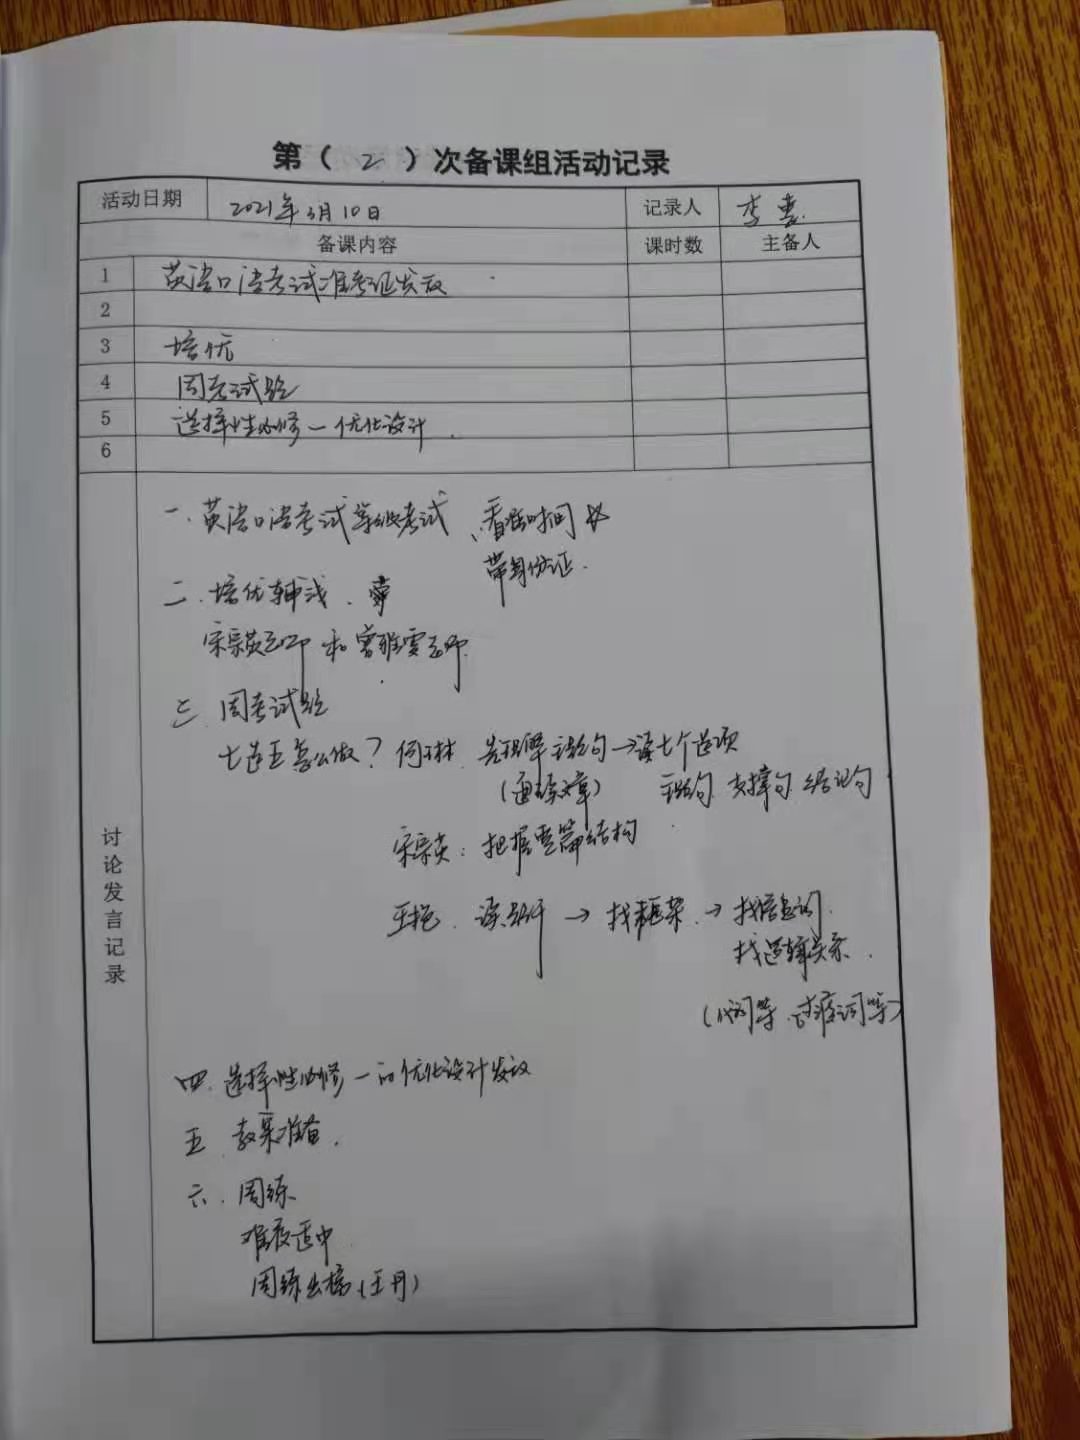 第（ 2 ）次备课组活动记录
活动日期 2021年3月10日 记录人 李
备课内容 课时数 主备人
1 英语口语考试准考证发放
2
3 培优
4 周考试题
5 选择性必修一优化设计.
6
讨论发言记录
一、英语口语考试等级考试、看准时间
带身份证.
二.培优辅浅.
宋宗英老师和 雅雯老师.
三 周考试题
七选五怎么做? 何琳. 先理解主题句→读七个选项
(通读文章) 主题句. 支撑句. 结论句
宋宗英: 把握整篇结构
王艳. 读题干 → 找框架. → 找信息词.
找逻辑关系.
(代词等.过渡词等)
四. 选择性必修一的优化设计发放
五 教案准备.
六. 周练
难度适中
周练出稿(王丹)